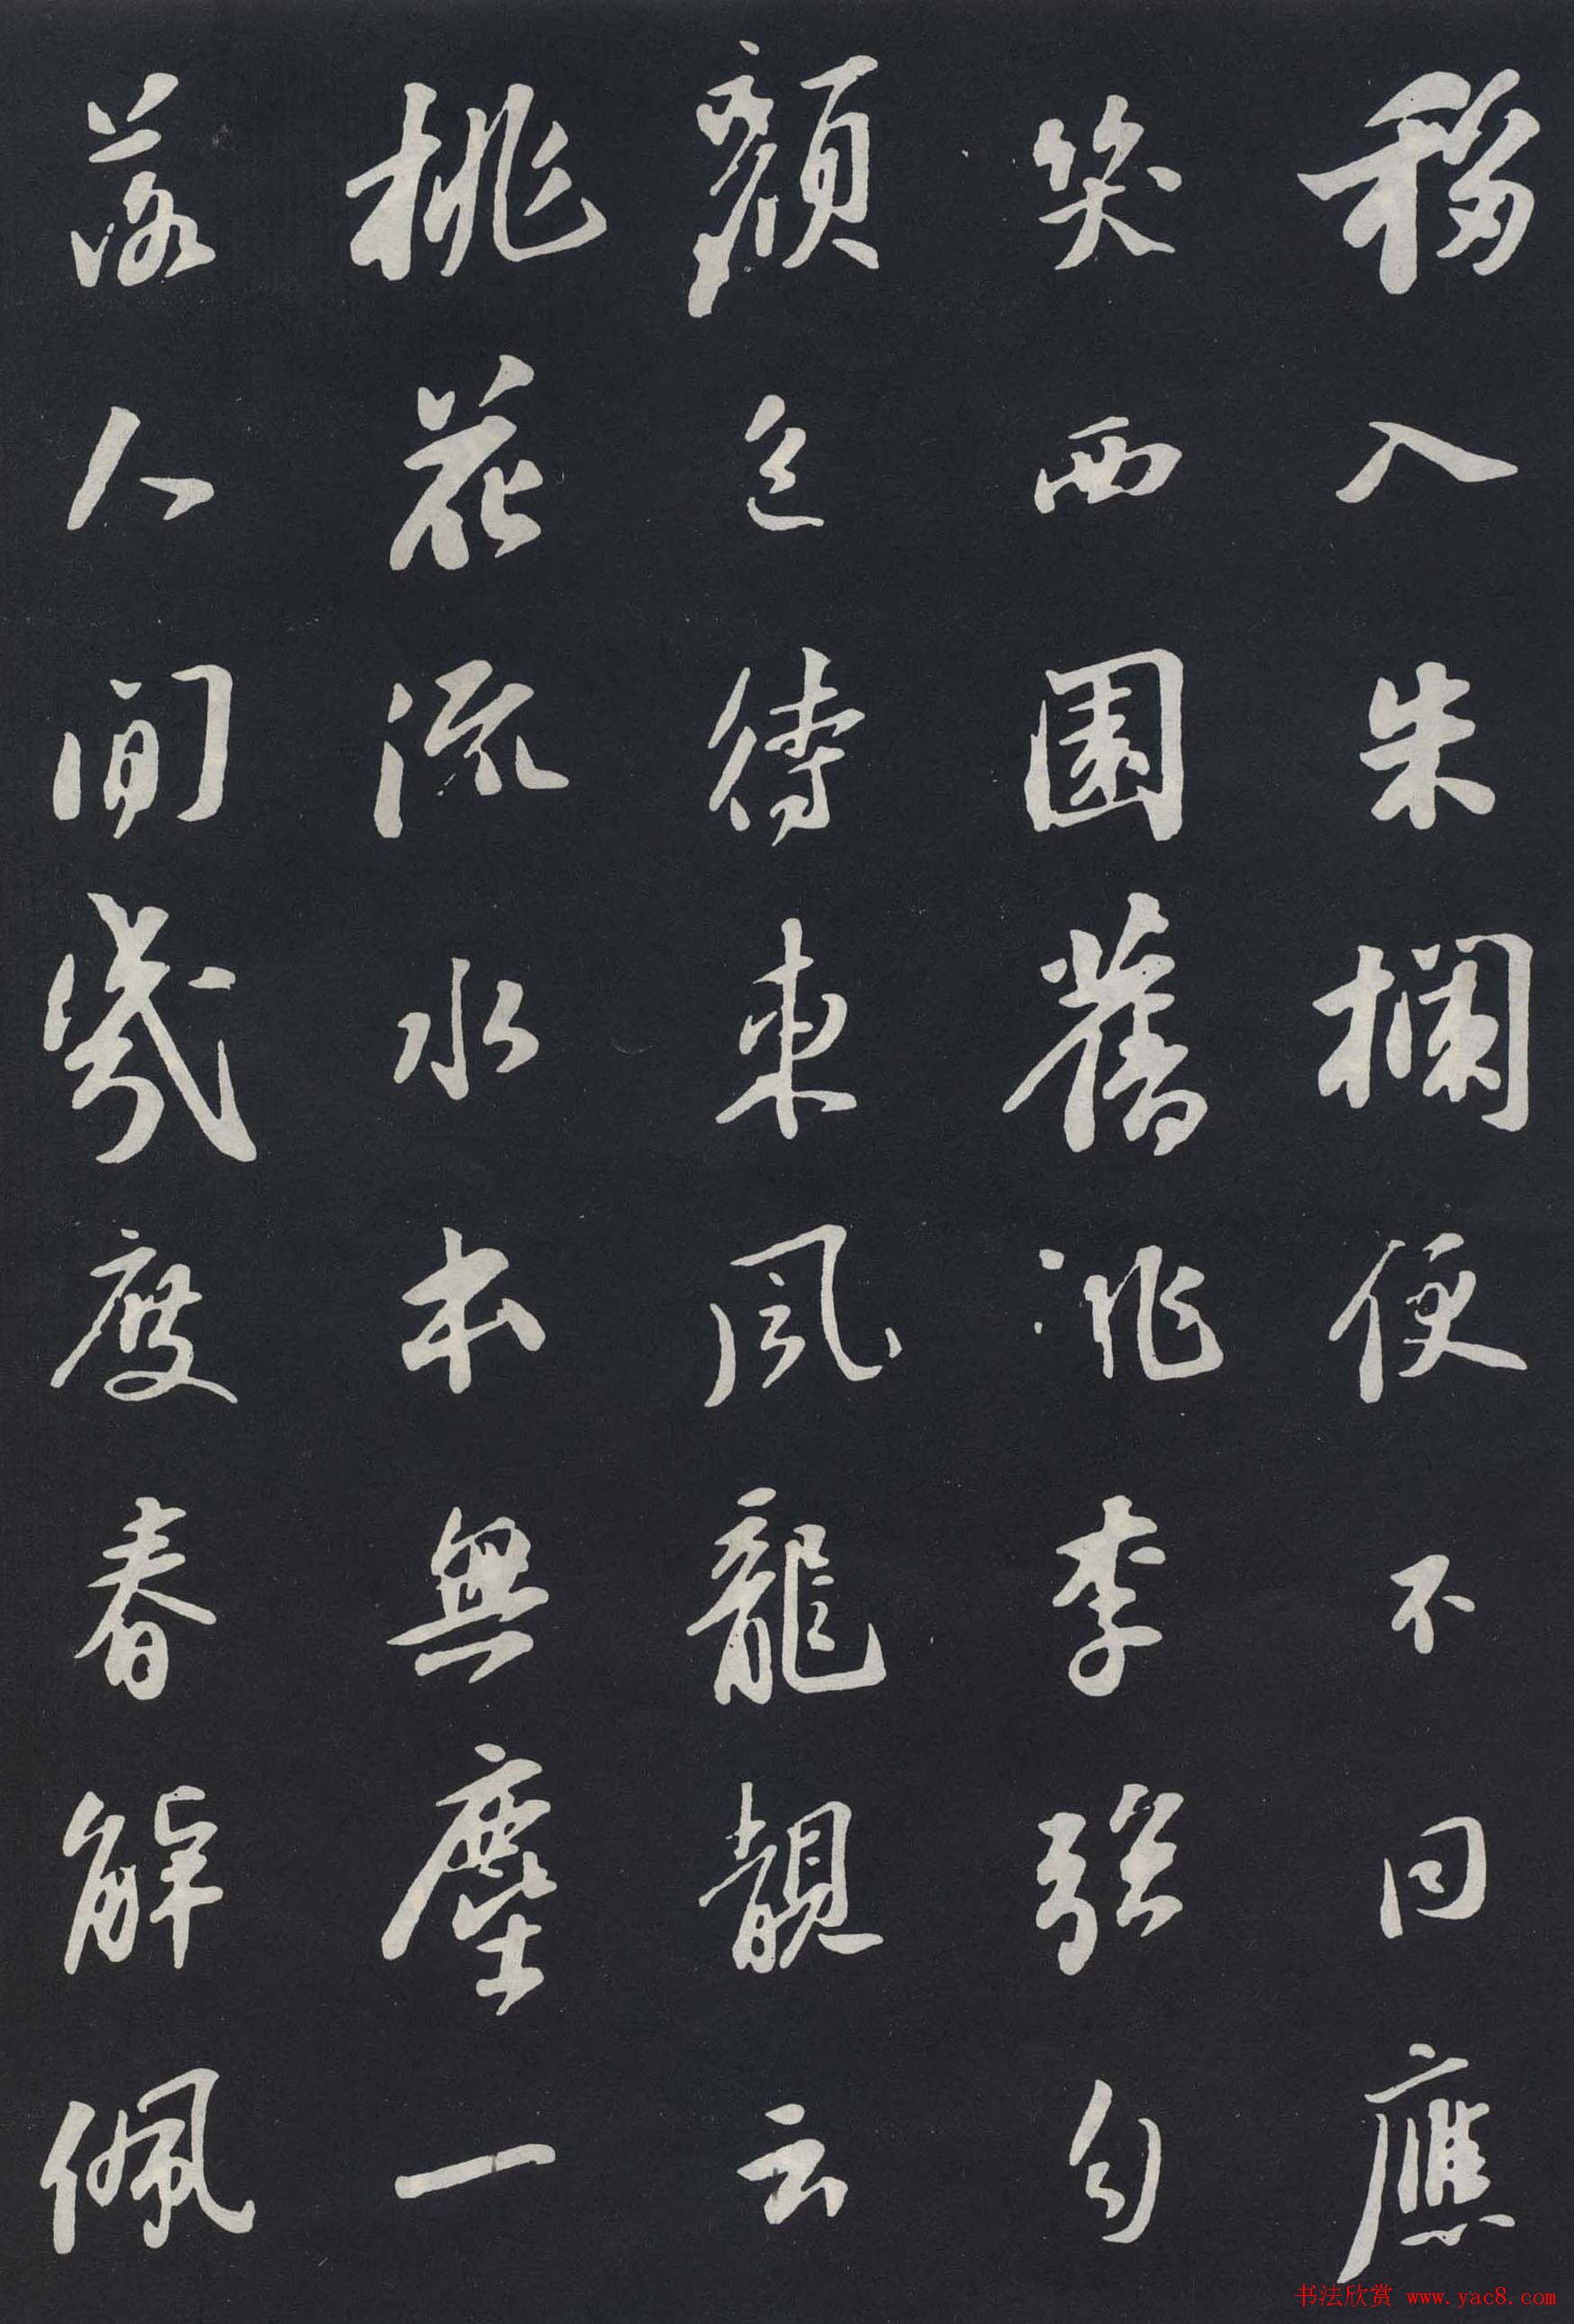 移入朱欄便不同應
笑西園舊桃李強勻
顏色待東風龍靚云
桃花流水本無塵一
落人間幾度春解佩
书法欣赏 www.yac8.com